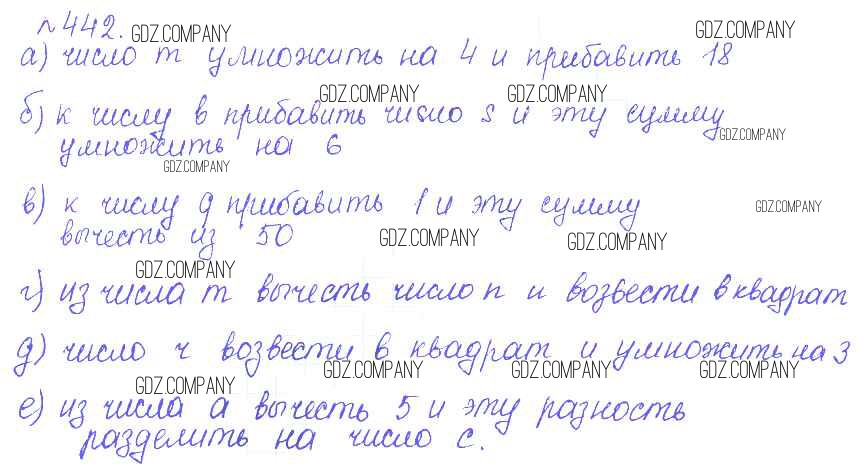 №442. GDZ.COMPANY GDZ.COMPANY
а) число m умножить на 4 и прибавить 18
GDZ.COMPANY GDZ.COMPANY
б) к числу в прибавить число s и эту сумму
GDZ.COMPANY
умножить на 6
GDZ.COMPANY
в) к числу g прибавить 1 и эту сумму GDZ.COMPANY
вычесть из 50 GDZ.COMPANY GDZ.COMPANY
GDZ.COMPANY
г) из числа m вычесть число n и возвести в квадрат
д) число ч возвести в квадрат и умножить на 3
GDZ.COMPANY GDZ.COMPANY GDZ.COMPANY GDZ.COMPANY
е) из числа а вычесть 5 и эту разность
разделить на число с.